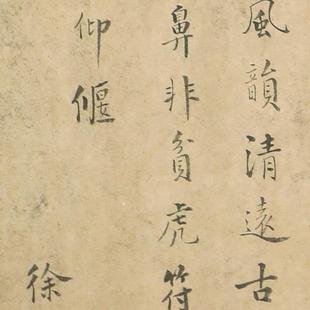 風韻清遠古
鼻非貧虎符
仰偃
徐